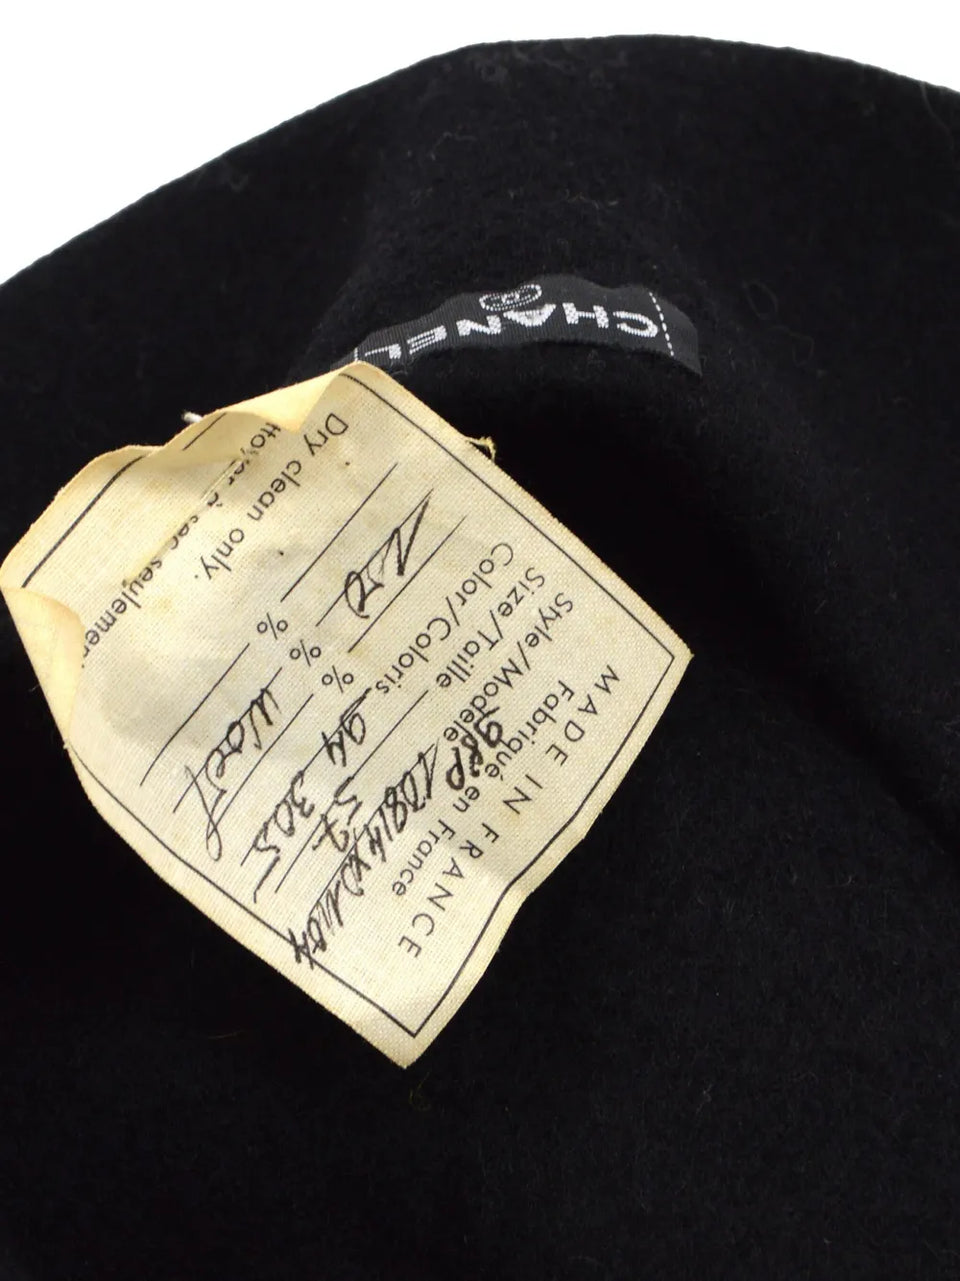 CHANEL
MADE IN FRANCE
Fabriqué en France
Style/Modèle 98P
Size/Taille 57
Color/Coloris 94305
100 % Woel
%
%
Dry clean only.
ttoyer à sec seulement